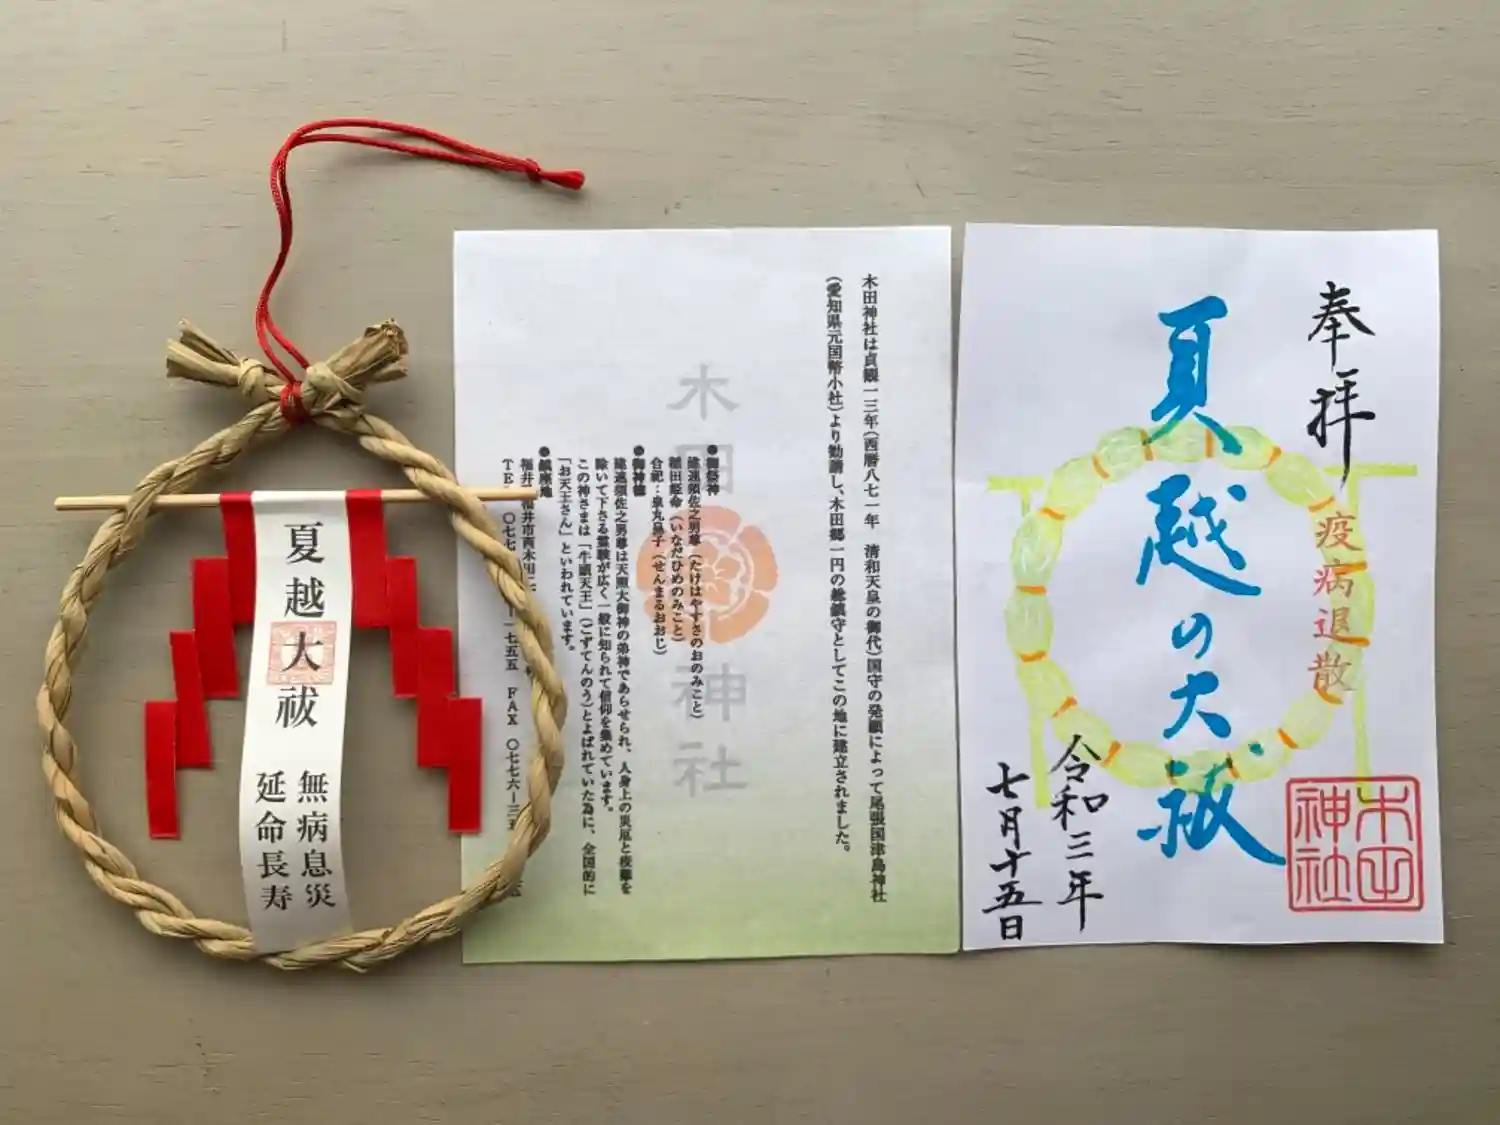 夏越大祓
無病息災
延命長寿
木田神社
木田神社は貞観一三年(西暦八七一年　清和天皇の御代)国守の発願によって尾張国津島神社
(愛知県元国幣小社)より勧請し、木田郷一円の総鎮守としてこの地に建立されました。
●御祭神
建速須佐之男尊 (たけはやすさのおのみこと)
稲田姫命 (いなだひめのみこと)
合祀：泉丸皇子 (せんまるおおじ)
●御神徳
建速須佐之男尊は天照大御神の弟神であらせられ、人身上の災厄と疫難を
除いて下さる霊験が広く一般に知られて信仰を集めています。
この神さまは「牛頭天王」(ごずてんのう)とよばれていた為に、全国的に
「お天王さん」といわれています。
●鎮座地
福井 福井市西木田二
ＦＡＸ 〇七七六ー三五
奉拝
疫病退散
夏越の大祓
令和三年
七月十五日
木田
神社